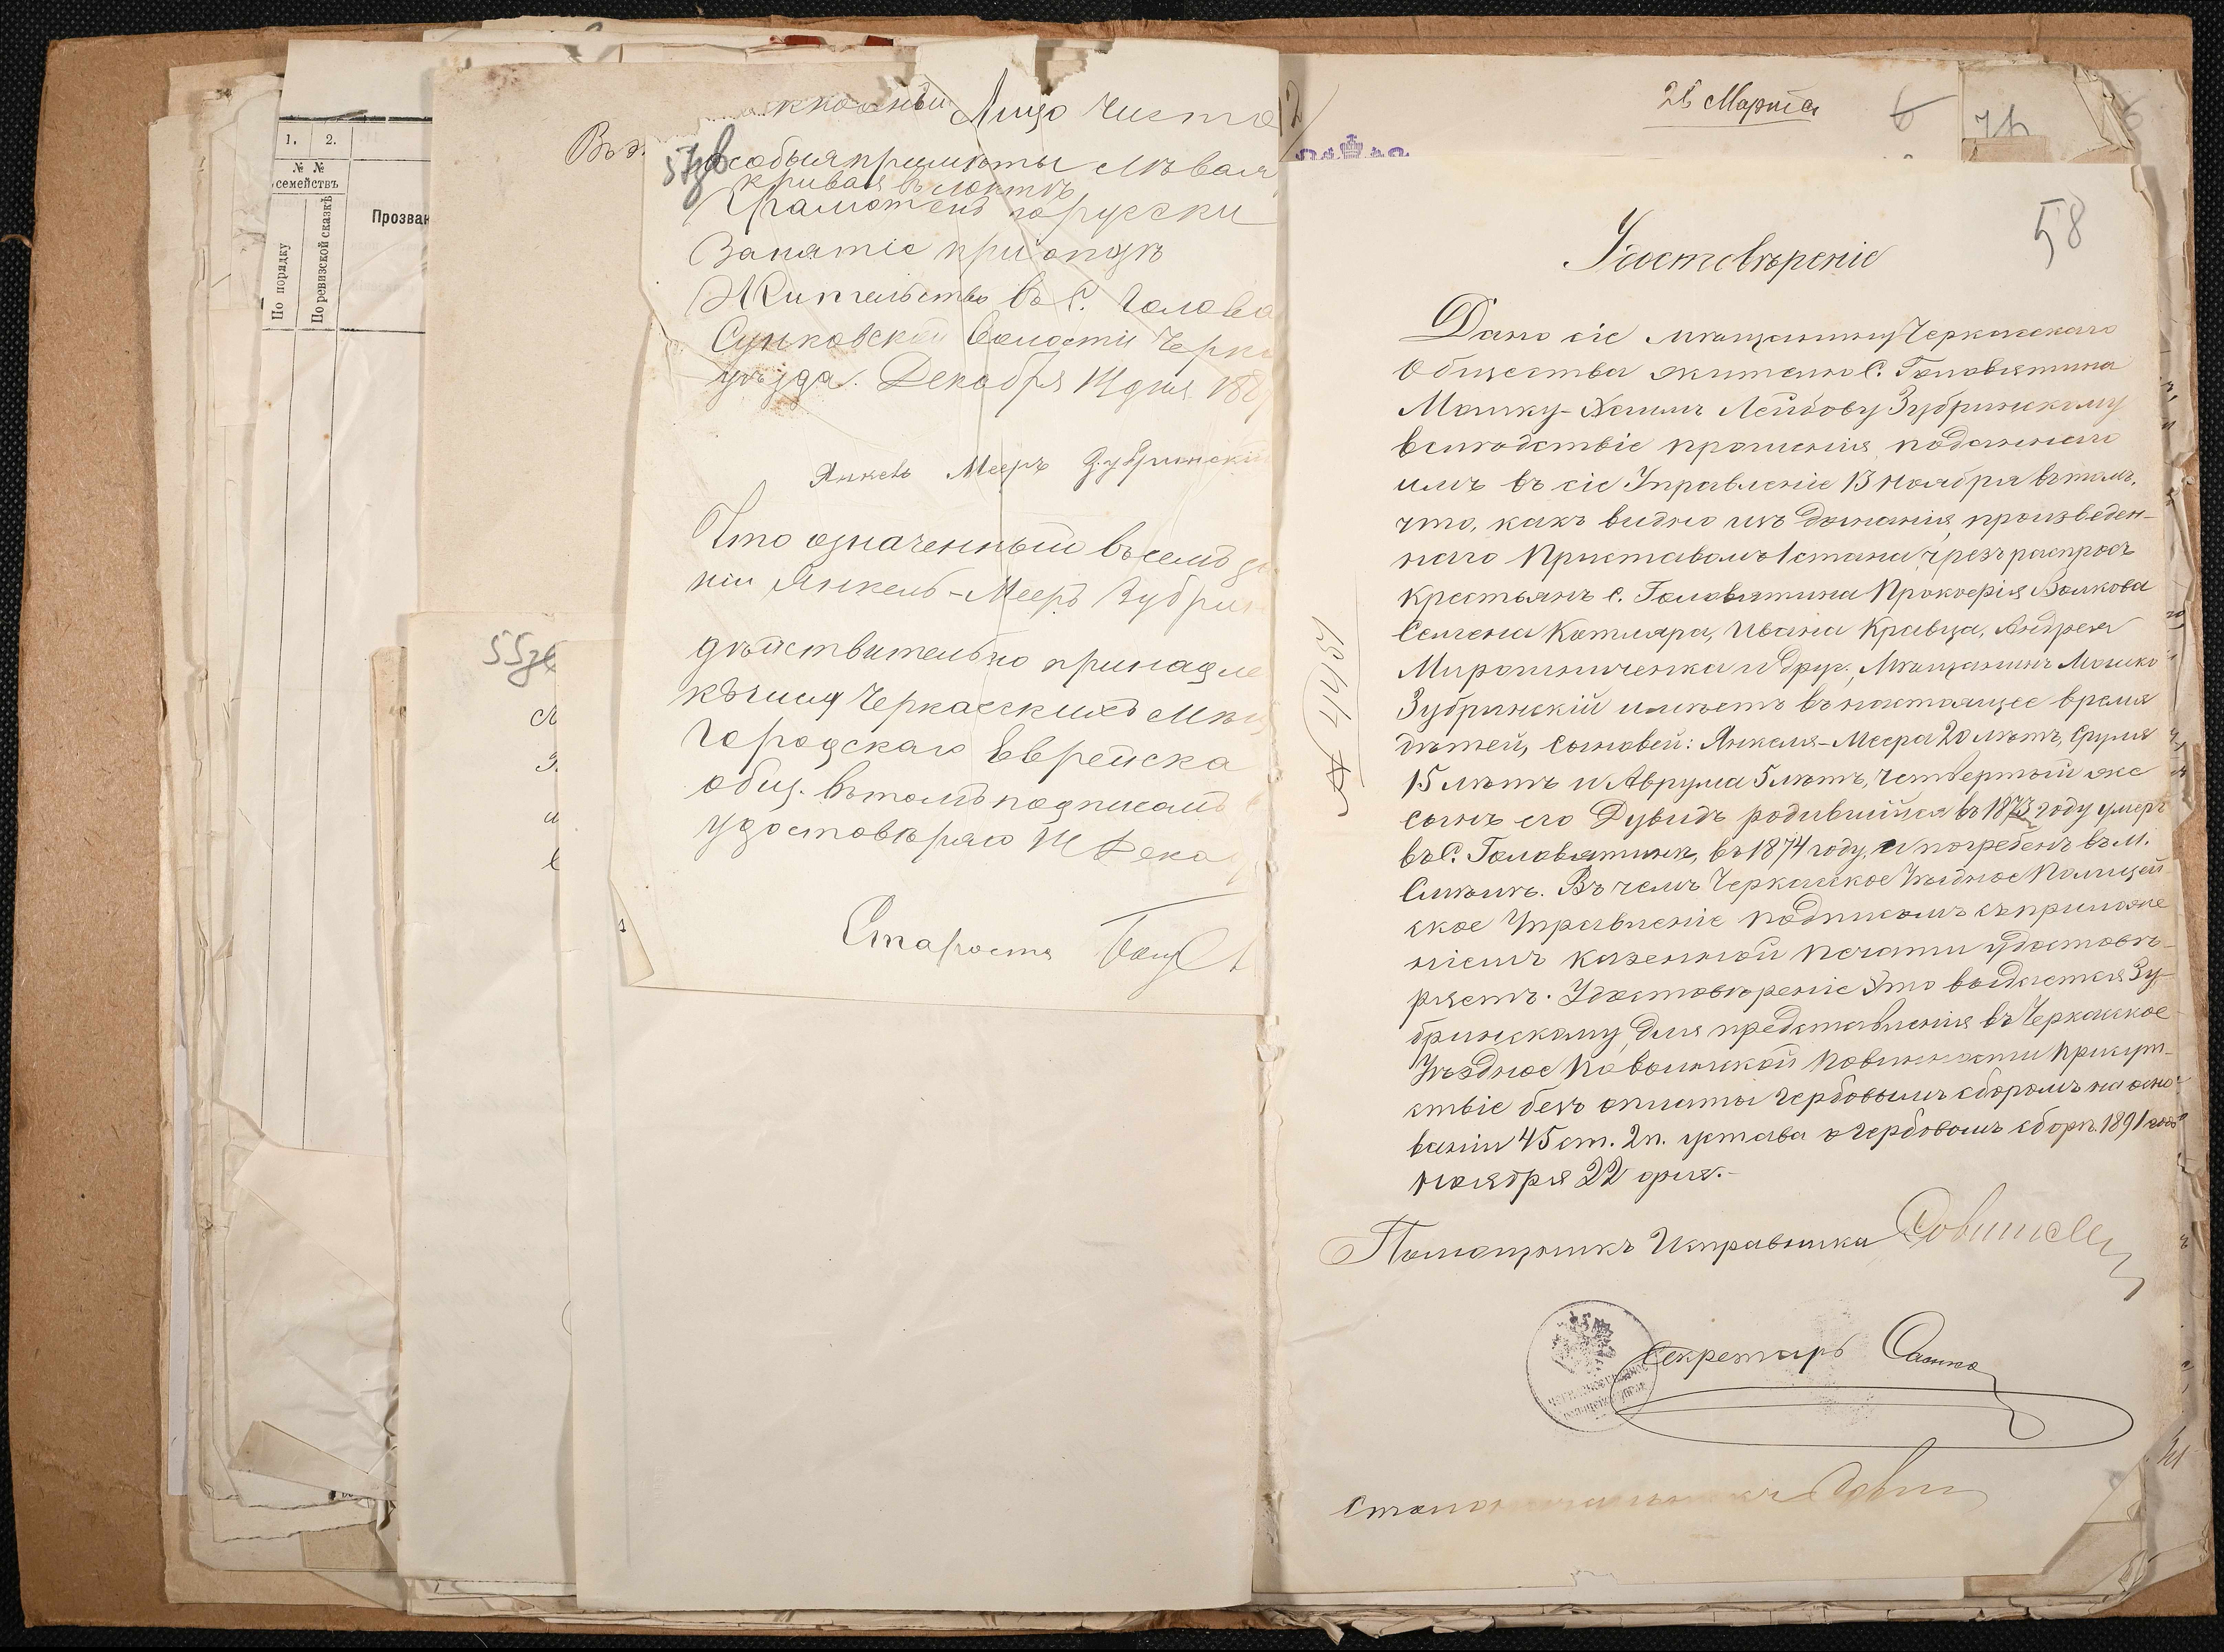 1. 2.
№ № семействъ
По порядку
По ревизской сказкѣ
Прозван
Въ
55 зв
57 зв
Лицо чисто
особыя примѣты лѣвая
кривая въ локтѣ
Грамотенъ порусски
Занятіе при отцѣ
Жительство въ С. Голова
Сунковской Волости Черк
уѣзда. Декабря 14 дня 189
Янкель Мееръ Зубринскій
Что означенный въ семъ
ніи Янкель-Мееръ Зубрин
дѣйствительно принадле
къ числу Черкасскихъ Мѣщ
Городскаго Еврейска
общ. въ томъ подписомъ
удостовѣряю 14 Дека
Староста
2
26 Марта
6
58
Удостовѣреніе
Дано сіе мѣщанину Черкасскаго
Общества жителю С. Головятина
Мошку-Хаиму Лейбову Зубринскому
вслѣдствіе прошенія, поданнаго
имъ въ сіе Управленіе 13 Ноября въ томъ,
что, какъ видно изъ дознанія, произведен-
наго Приставомъ 1 стана чрезъ распросъ
крестьянъ с. Головятина Прокофія Волкова
Семена Котляра, Ивана Кравца, Андрея
Мирошниченка и друг., Мѣщанинъ Мошко
Зубринскій имѣетъ въ настоящее время
дѣтей, сыновей: Янкеля-Меера 20 лѣтъ, Сруля
15 лѣтъ и Аврума 5 лѣтъ, четвертый же
сынъ его Дувидъ родившійся въ 1873 году умеръ
въ С. Головятинѣ, въ 1874 году, и погребенъ въ м.
Смѣлѣ. Въ чемъ Черкасское Уѣздное Полицей
ское Управленіе подписомъ съ приложе
ніемъ казенной печати удостовѣ-
ряетъ. Удостовѣреніе это выдается Зу-
бринскому для представленія въ Черкасское
Уѣздное по воинской повинности Присут-
ствіе безъ оплаты гербовымъ сборомъ на осно-
ваніи 45 ст. 2 п. устава о гербовомъ сборѣ. 1891 года
ноября 22 дня.-
Помощникъ Исправника
Секретарь